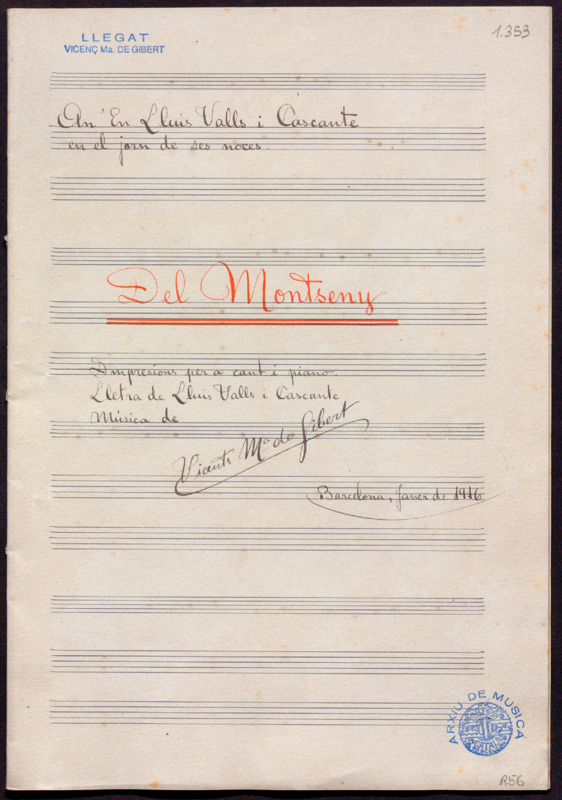 LLEGAT
VICENÇ Ma. DE GIBERT
1.353
An' En Lluis Valls i Cascante
en el jorn de ses noces.
Del Montseny
Impresions per a cant i piano.
Lletra de Lluis Valls i Cascante
Música de
Vicents Mª de Gibert
Barcelona, Janer de 1916
ARXIU DE MÚSICA
R56